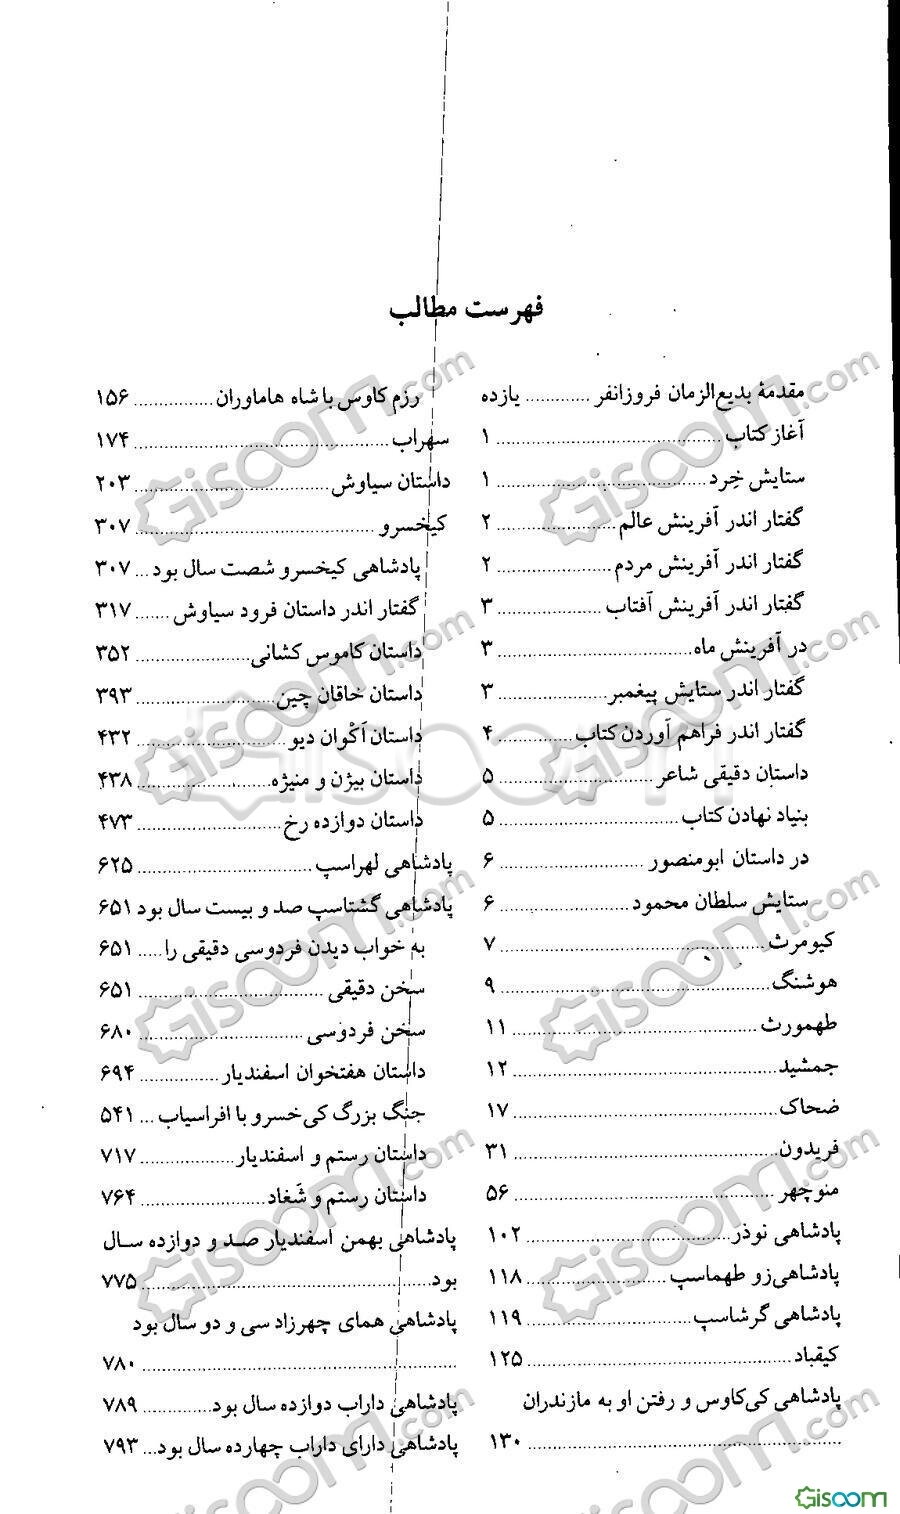 فهرست مطالب
مقدمهٔ بدیع‌الزمان فروزانفر ............ یازده
آغاز کتاب ............ ۱
ستایش خِرد ............ ۱
گفتار اندر آفرینش عالم ............ ۲
گفتار اندر آفرینش مردم ............ ۲
گفتار اندر آفرینش آفتاب ............ ۳
در آفرینش ماه ............ ۳
گفتار اندر ستایش پیغمبر ............ ۳
گفتار اندر فراهم آوردن کتاب ............ ۴
داستان دقیقی شاعر ............ ۵
بنیاد نهادن کتاب ............ ۵
در داستان ابومنصور ............ ۶
ستایش سلطان محمود ............ ۶
کیومرث ............ ۷
هوشنگ ............ ۹
طهمورث ............ ۱۱
جمشید ............ ۱۲
ضحاک ............ ۱۷
فریدون ............ ۳۱
منوچهر ............ ۵۶
پادشاهی نوذر ............ ۱۰۲
پادشاهی زو طهماسپ ............ ۱۱۸
پادشاهی گرشاسپ ............ ۱۱۹
کیقباد ............ ۱۲۵
پادشاهی کی‌کاوس و رفتن او به مازندران
............ ۱۳۰
رزم کاوس با شاه هاماوران ............ ۱۵۶
سهراب ............ ۱۷۴
داستان سیاوش ............ ۲۰۳
کیخسرو ............ ۳۰۷
پادشاهی کیخسرو شصت سال بود ... ۳۰۷
گفتار اندر داستان فرود سیاوش ....... ۳۱۷
داستان کاموس کشانی ............ ۳۵۲
داستان خاقان چین ............ ۳۹۳
داستان اَکْوان دیو ............ ۴۳۲
داستان بیژن و منیژه ............ ۴۳۸
داستان دوازده رخ ............ ۴۷۳
پادشاهی لهراسپ ............ ۶۲۵
پادشاهی گشتاسپ صد و بیست سال بود ۶۵۱
به خواب دیدن فردوسی دقیقی را ..... ۶۵۱
سخن دقیقی ............ ۶۵۱
سخن فردوسی ............ ۶۸۰
داستان هفتخوان اسفندیار ............ ۶۹۴
جنگ بزرگ کی‌خسرو با افراسیاب ... ۵۴۱
داستان رستم و اسفندیار ............ ۷۱۷
داستان رستم و شَغاد ............ ۷۶۴
پادشاهی بهمن اسفندیار صد و دوازده سال
بود ............ ۷۷۵
پادشاهی همای چهرزاد سی و دو سال بود
............ ۷۸۰
پادشاهی داراب دوازده سال بود ............ ۷۸۹
پادشاهی دارای داراب چهارده سال بود ... ۷۹۳
Gisoom
Gisoom.com
Gisoom.com
Gisoom.com
Gisoom.com
Gisoom.com
Gisoom.com
Gisoom.com
Gisoom.com
Gisoom.com
Gisoom.com
Gisoom